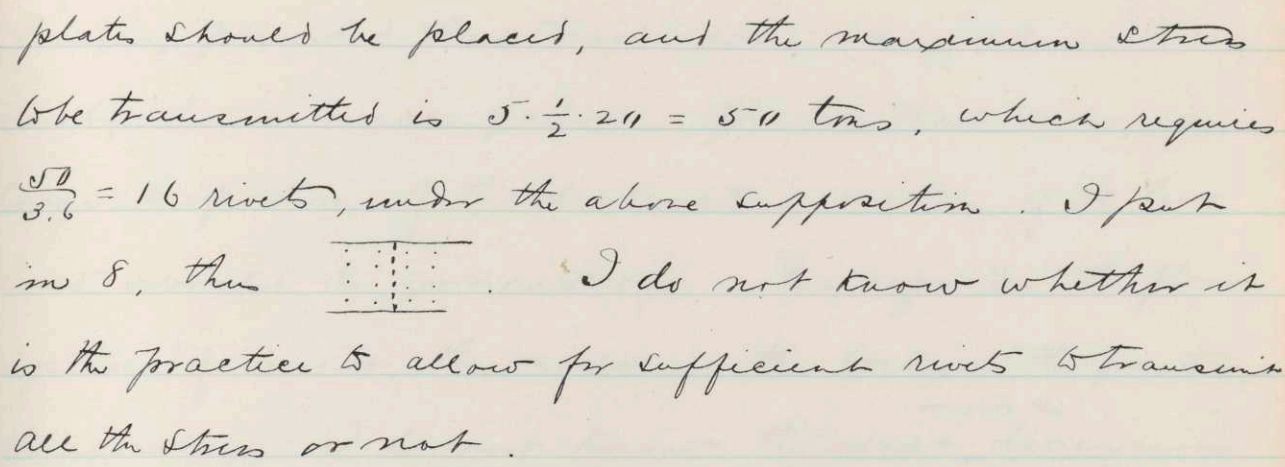 plates should be placed, and the maximum stress
to be transmitted is 5·½·20 = 50 tons, which requires
50/3.6 = 16 rivets, under the above supposition. I put
in 8, thus . I do not know whether it
is the practice to allow for sufficient rivets to transmit
all the stress or not.